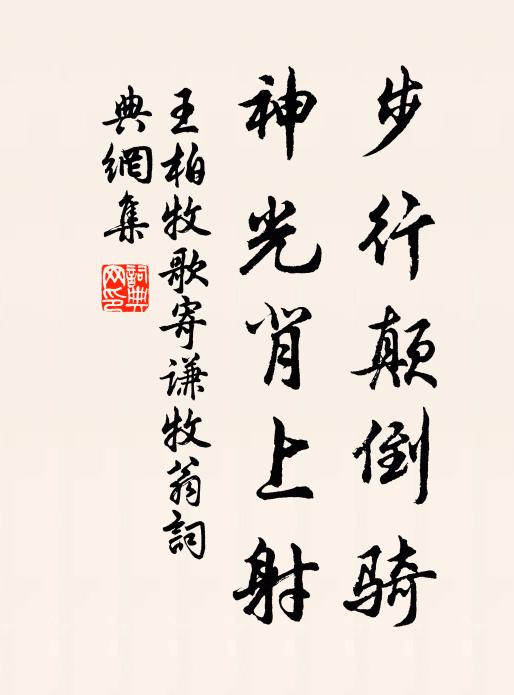 步行颠倒骑
神光背上射
王柏牧歌寄谦牧翁詞
典網集
詞典
网印